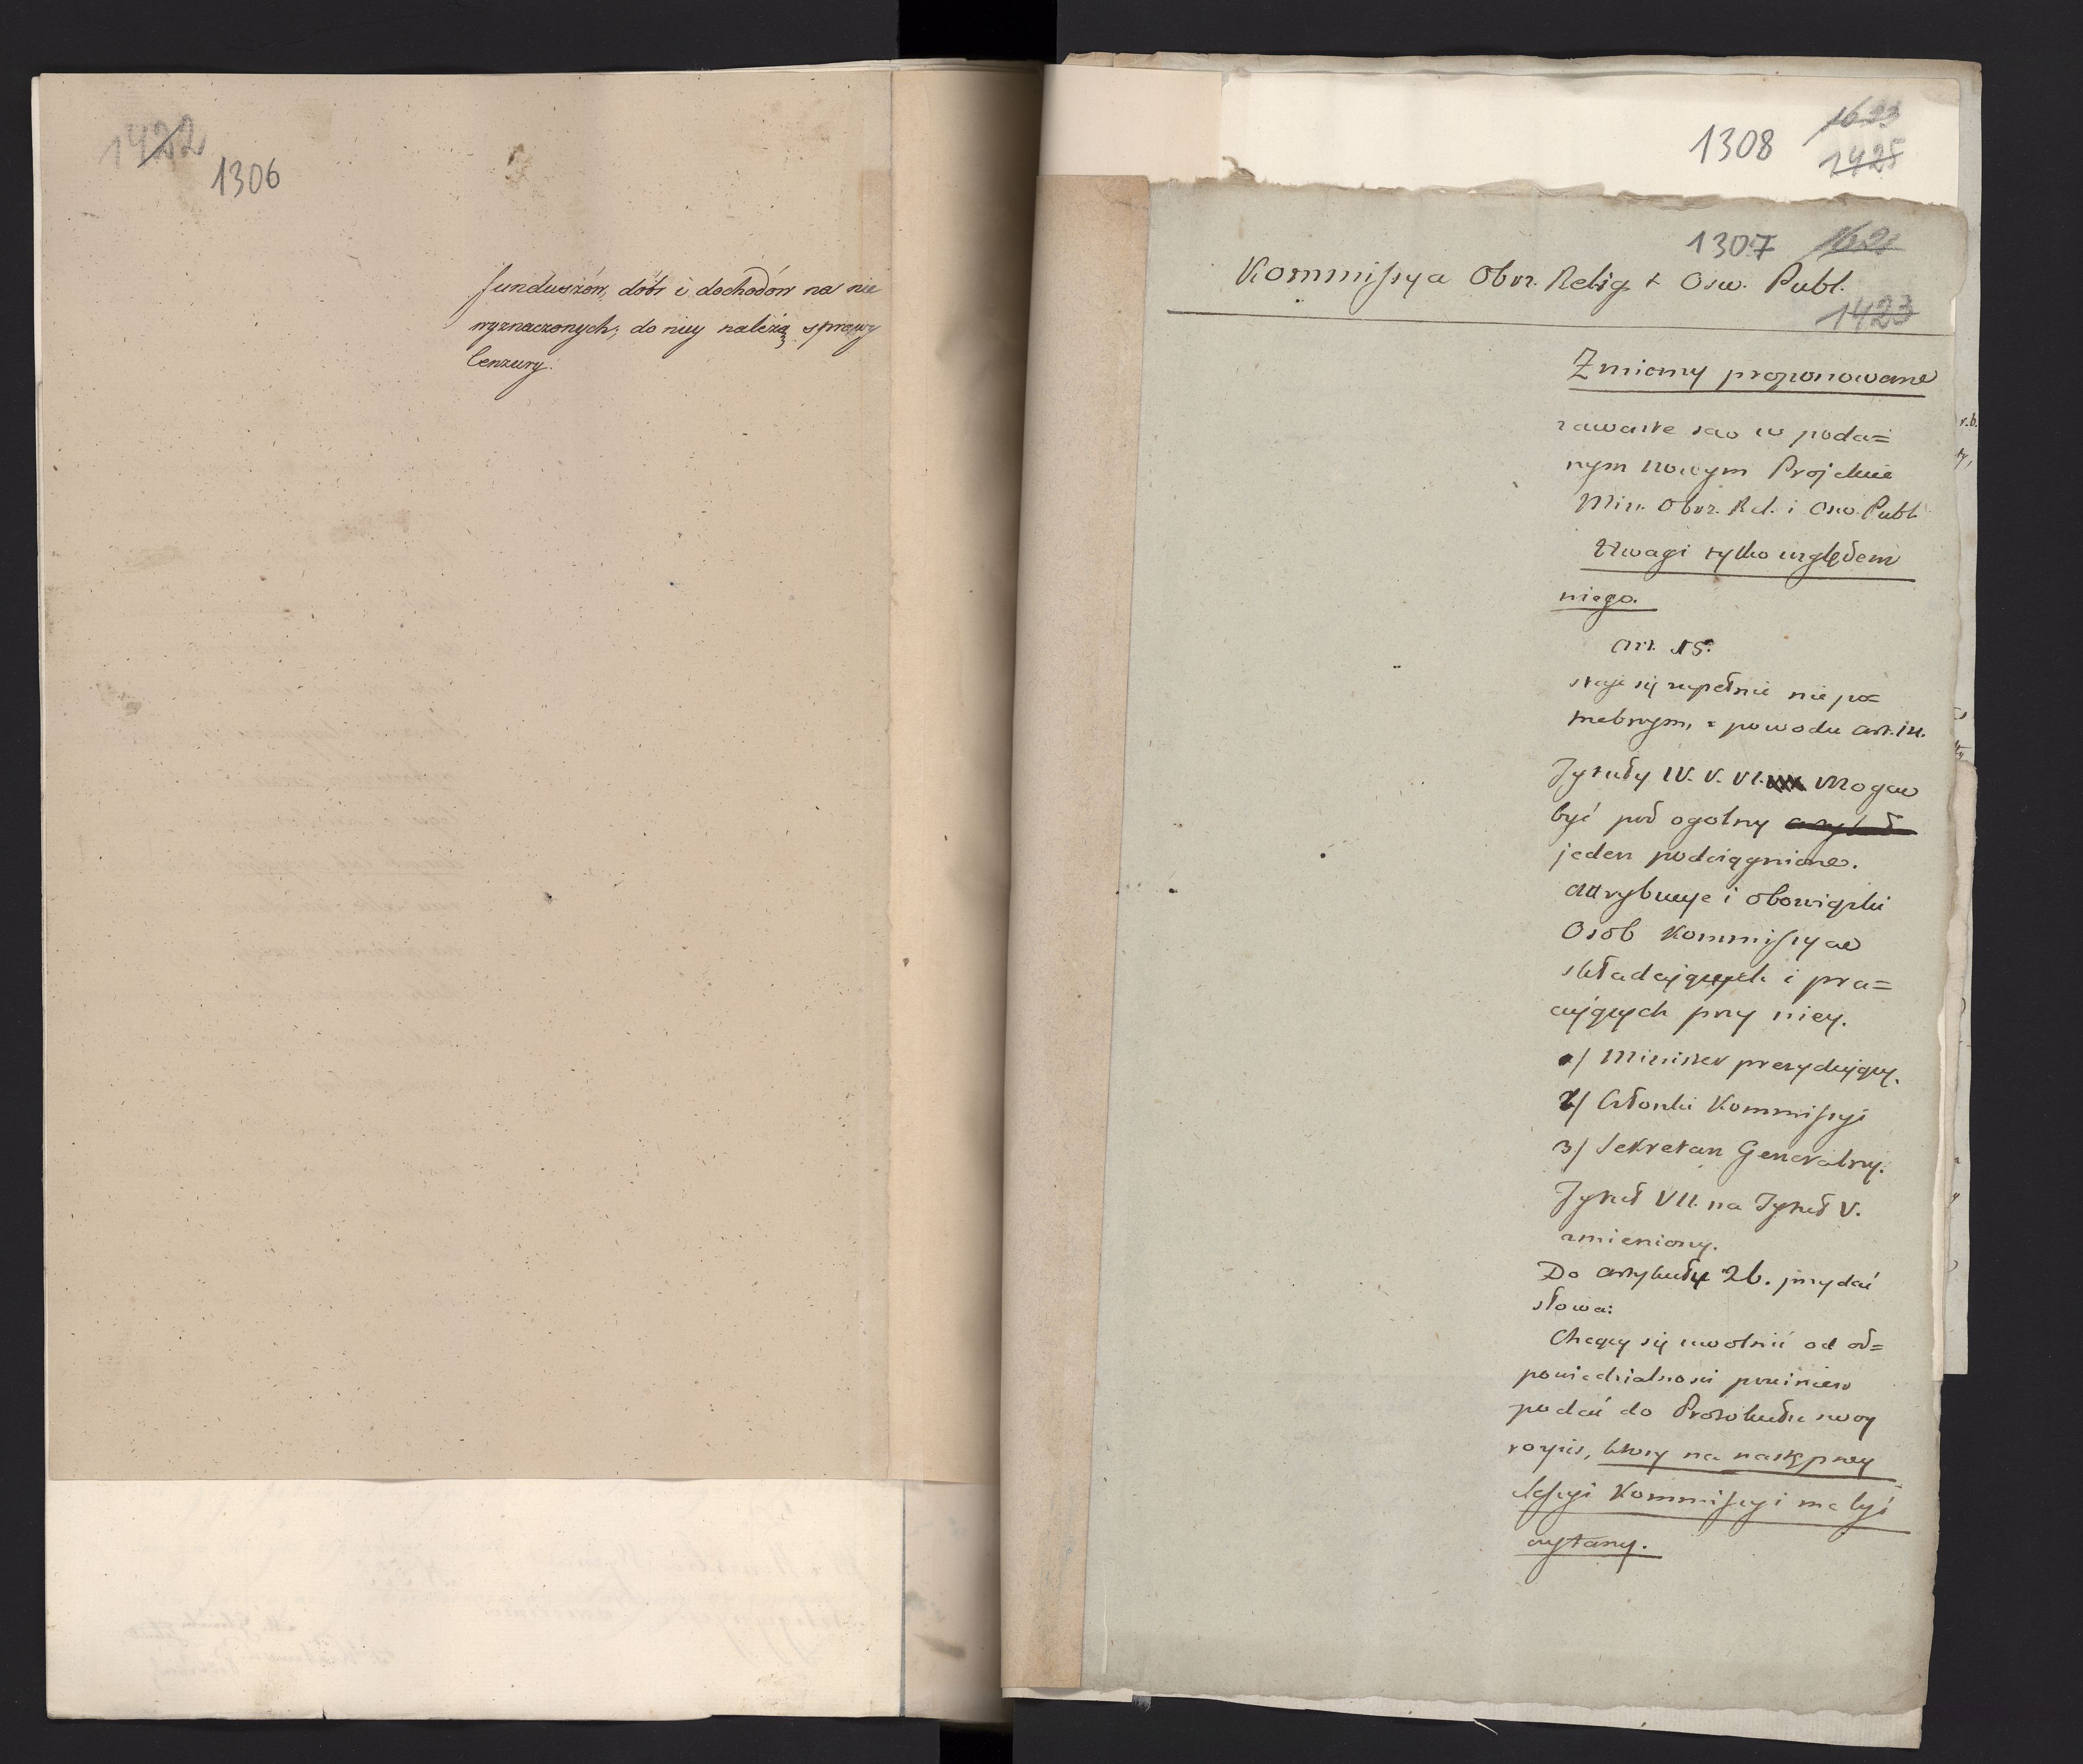 1422
1306
funduszów, dóbr i dochodów na nie
wyznaczonych; do niey należą sprawy
Cenzury.
1308
1623
1425
1307
1423
Kommissya Obrz. Relig & Osw. Publ.
Zmiany proponowane
zawarte są w poda=
nym nowym Projekcie
Min. Obrz. Rel. i Osw. Publ
Uwagi tylko względem
niego.
Art. 15.
staje się zupełnie niepo=
trzebnym, z powodu art. 14.
Tytuły IV. V. VI. Mogą
być pod ogolny
jeden podciągnione.
Attrybucye i obowiązki
Osób Kommissyą
składających i pra=
cujących przy niey.
1/ Minister prezydujący.
2/ Członki Kommissyi
3/ Sekretarz Generalny.
Tytuł VII. na Tytuł V.
zmieniony.
Do artykułu 26. przydać
słowa:
Chcący się uwolnić od od=
powiedzialności powinien
podać do Protokułu swoy
rozpis, który na następney
Sessyi Kommissyi ma być
czytany.
r.b.